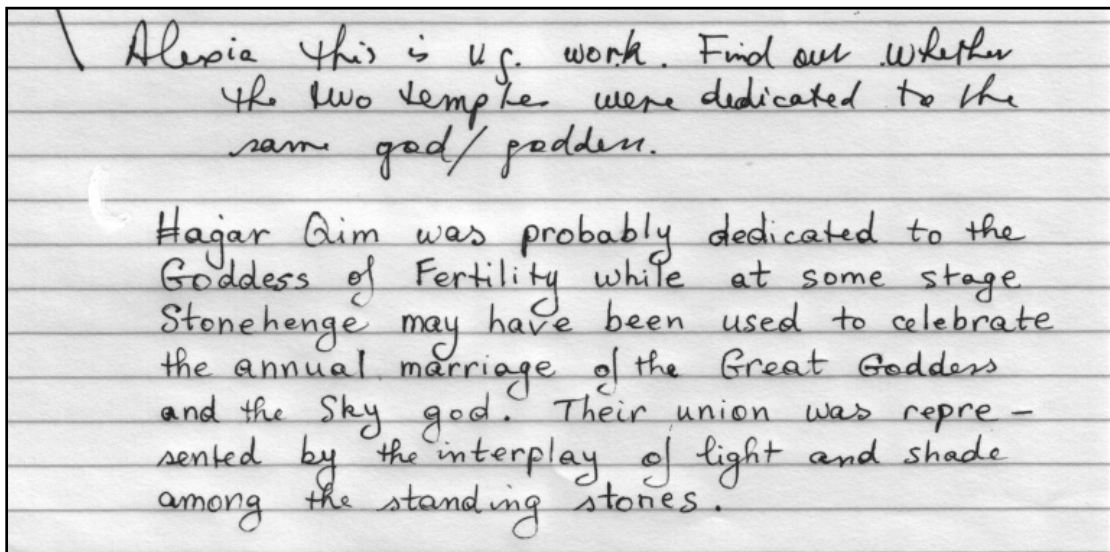 Alexia this is v.g. work. Find out whether
the two temples were dedicated to the
same god/goddess.
Ħaġar Qim was probably dedicated to the
Goddess of Fertility while at some stage
Stonehenge may have been used to celebrate
the annual marriage of the Great Goddess
and the Sky god. Their union was repre-
sented by the interplay of light and shade
among the standing stones.